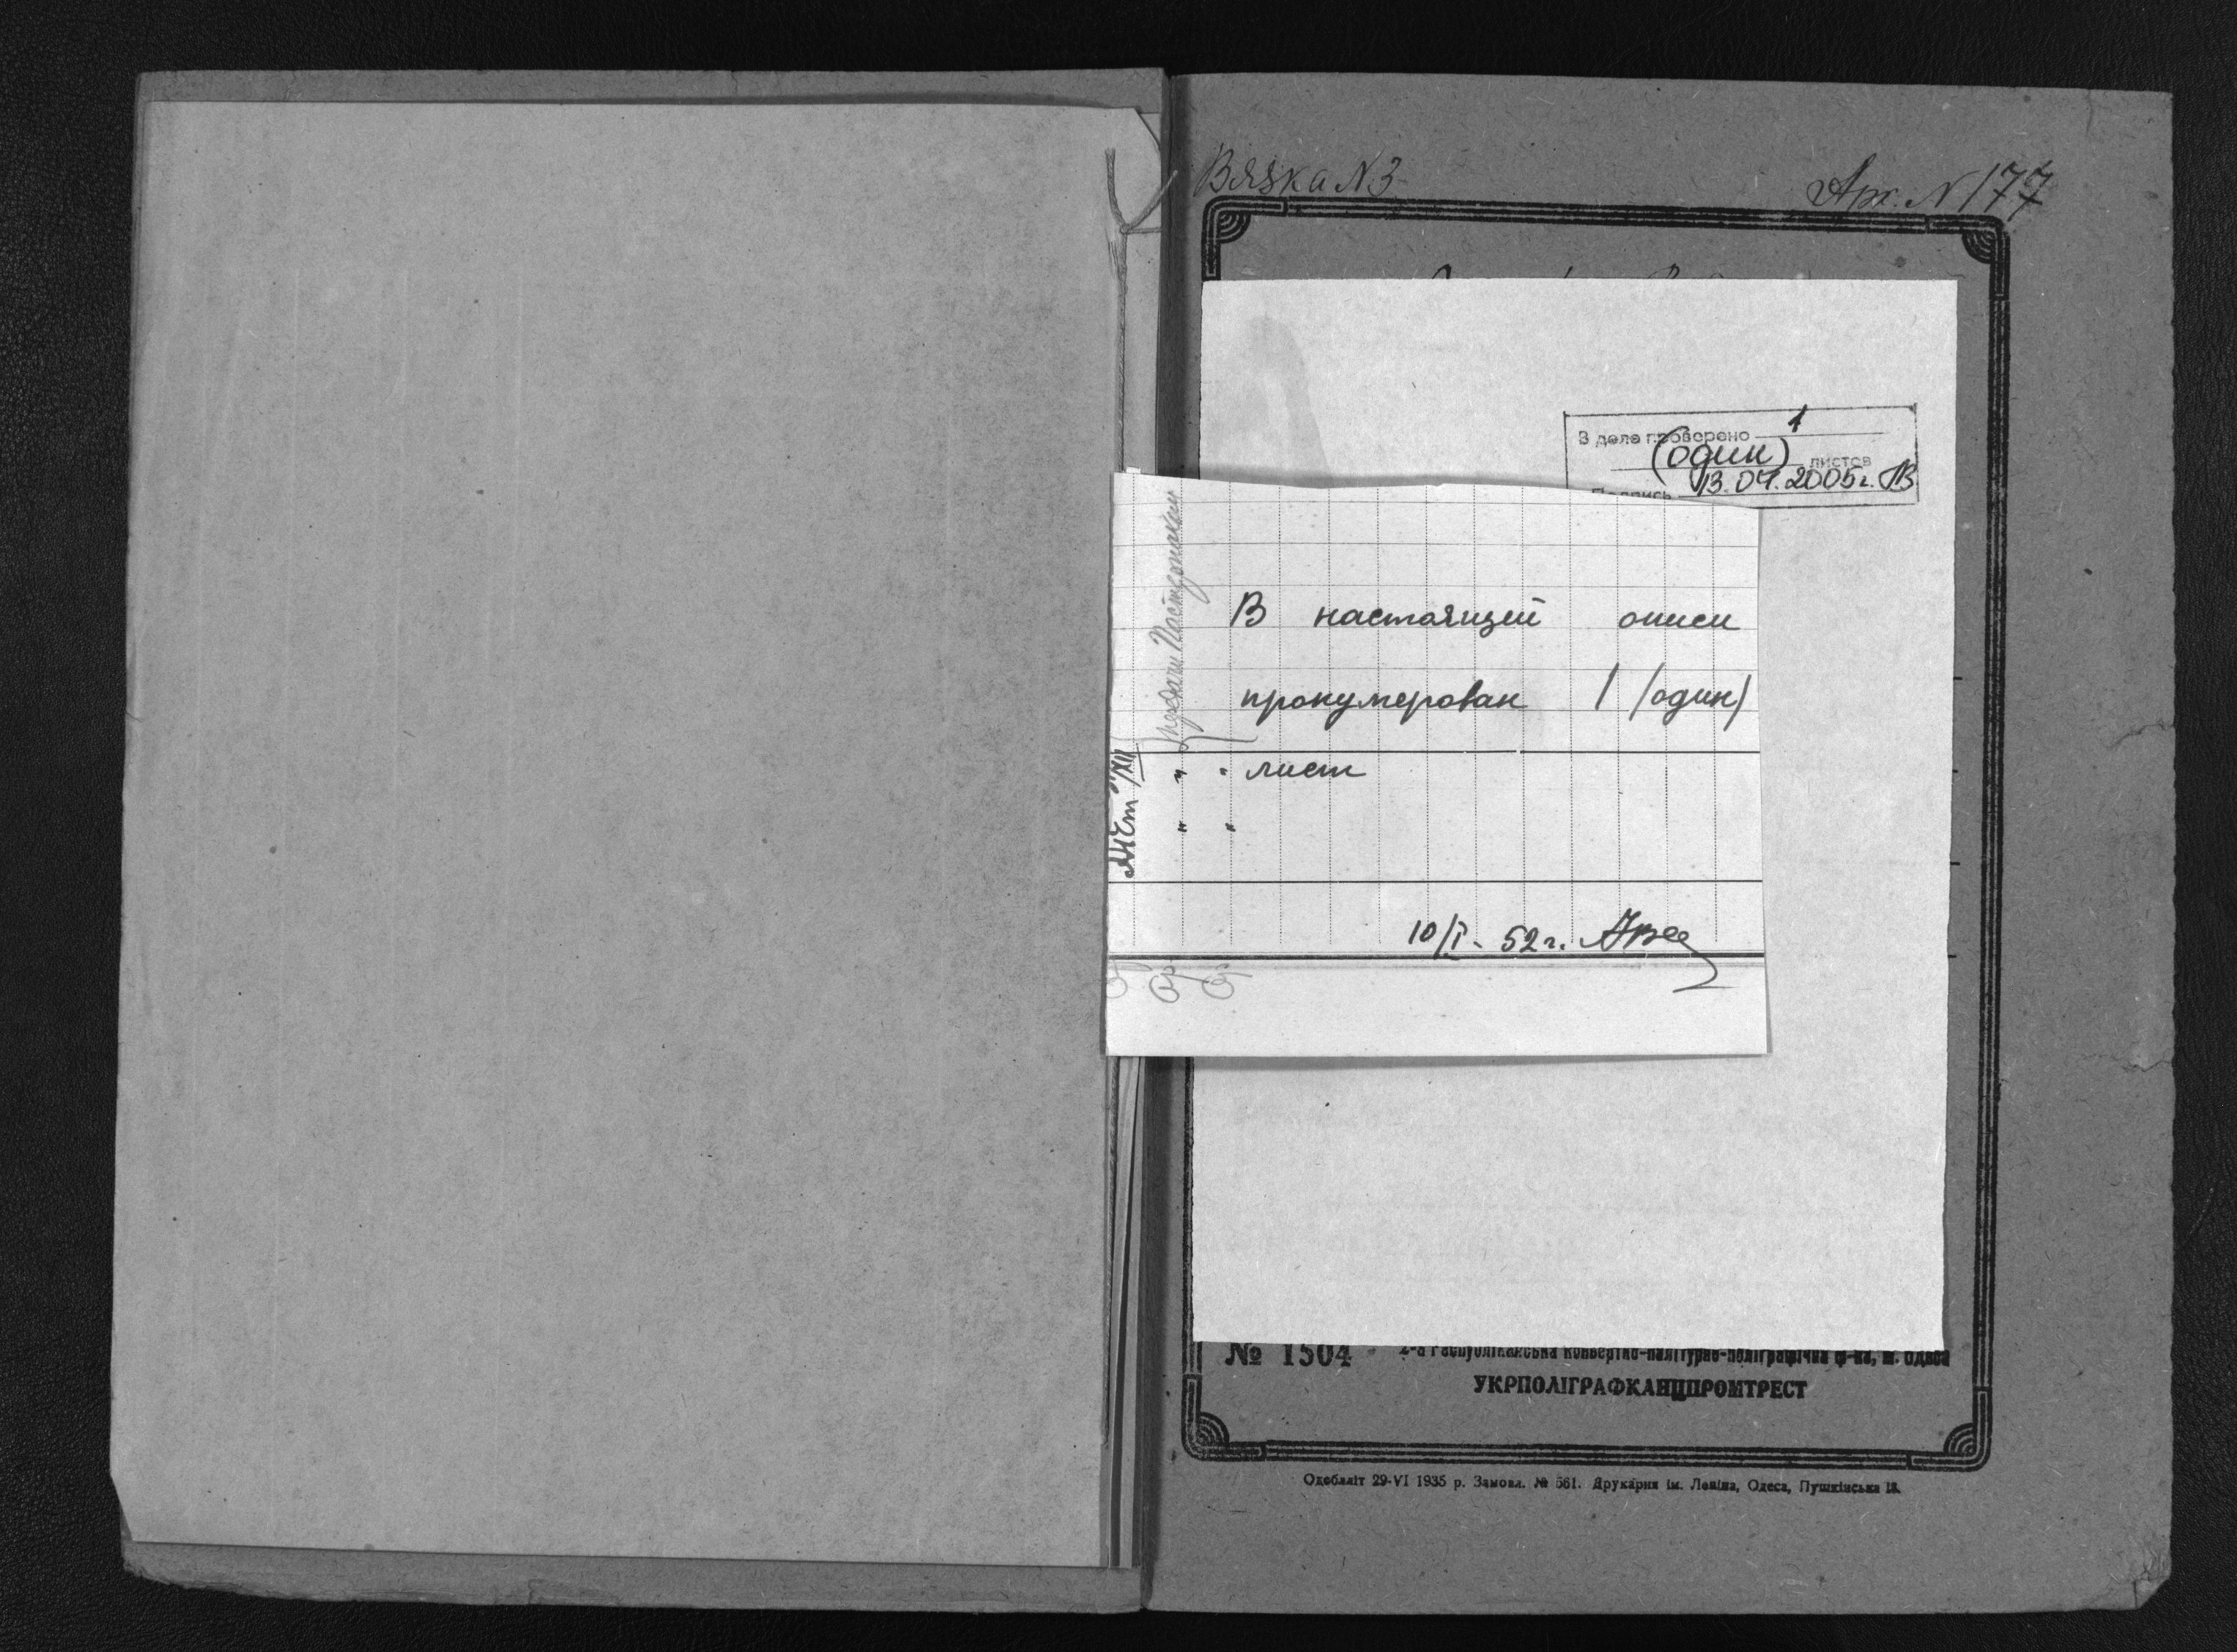 Вязка N 3
Арх. N 177
В деле проверено 1
(один) листов
Подпись 13.04.2005г.
В настоящей описи
пронумерован 1 /один/
лист
10/I - 52 г.
№ 1504 2-а Республіканська конвертно-палітурно-поліграфічна ф-ка, м. Одеса
УКРПОЛІГРАФКАНЦПРОМТРЕСТ
Одобліт 29-VI 1935 р. Замовл. № 561. Друкарня ім. Леніна, Одеса, Пушкінська 18.